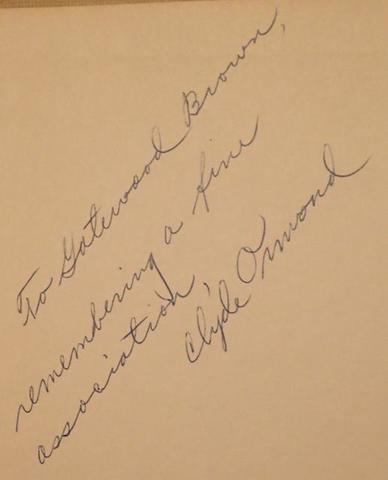 To Gatewood Brown,
remembering a fine
association,
Clyde Ormond